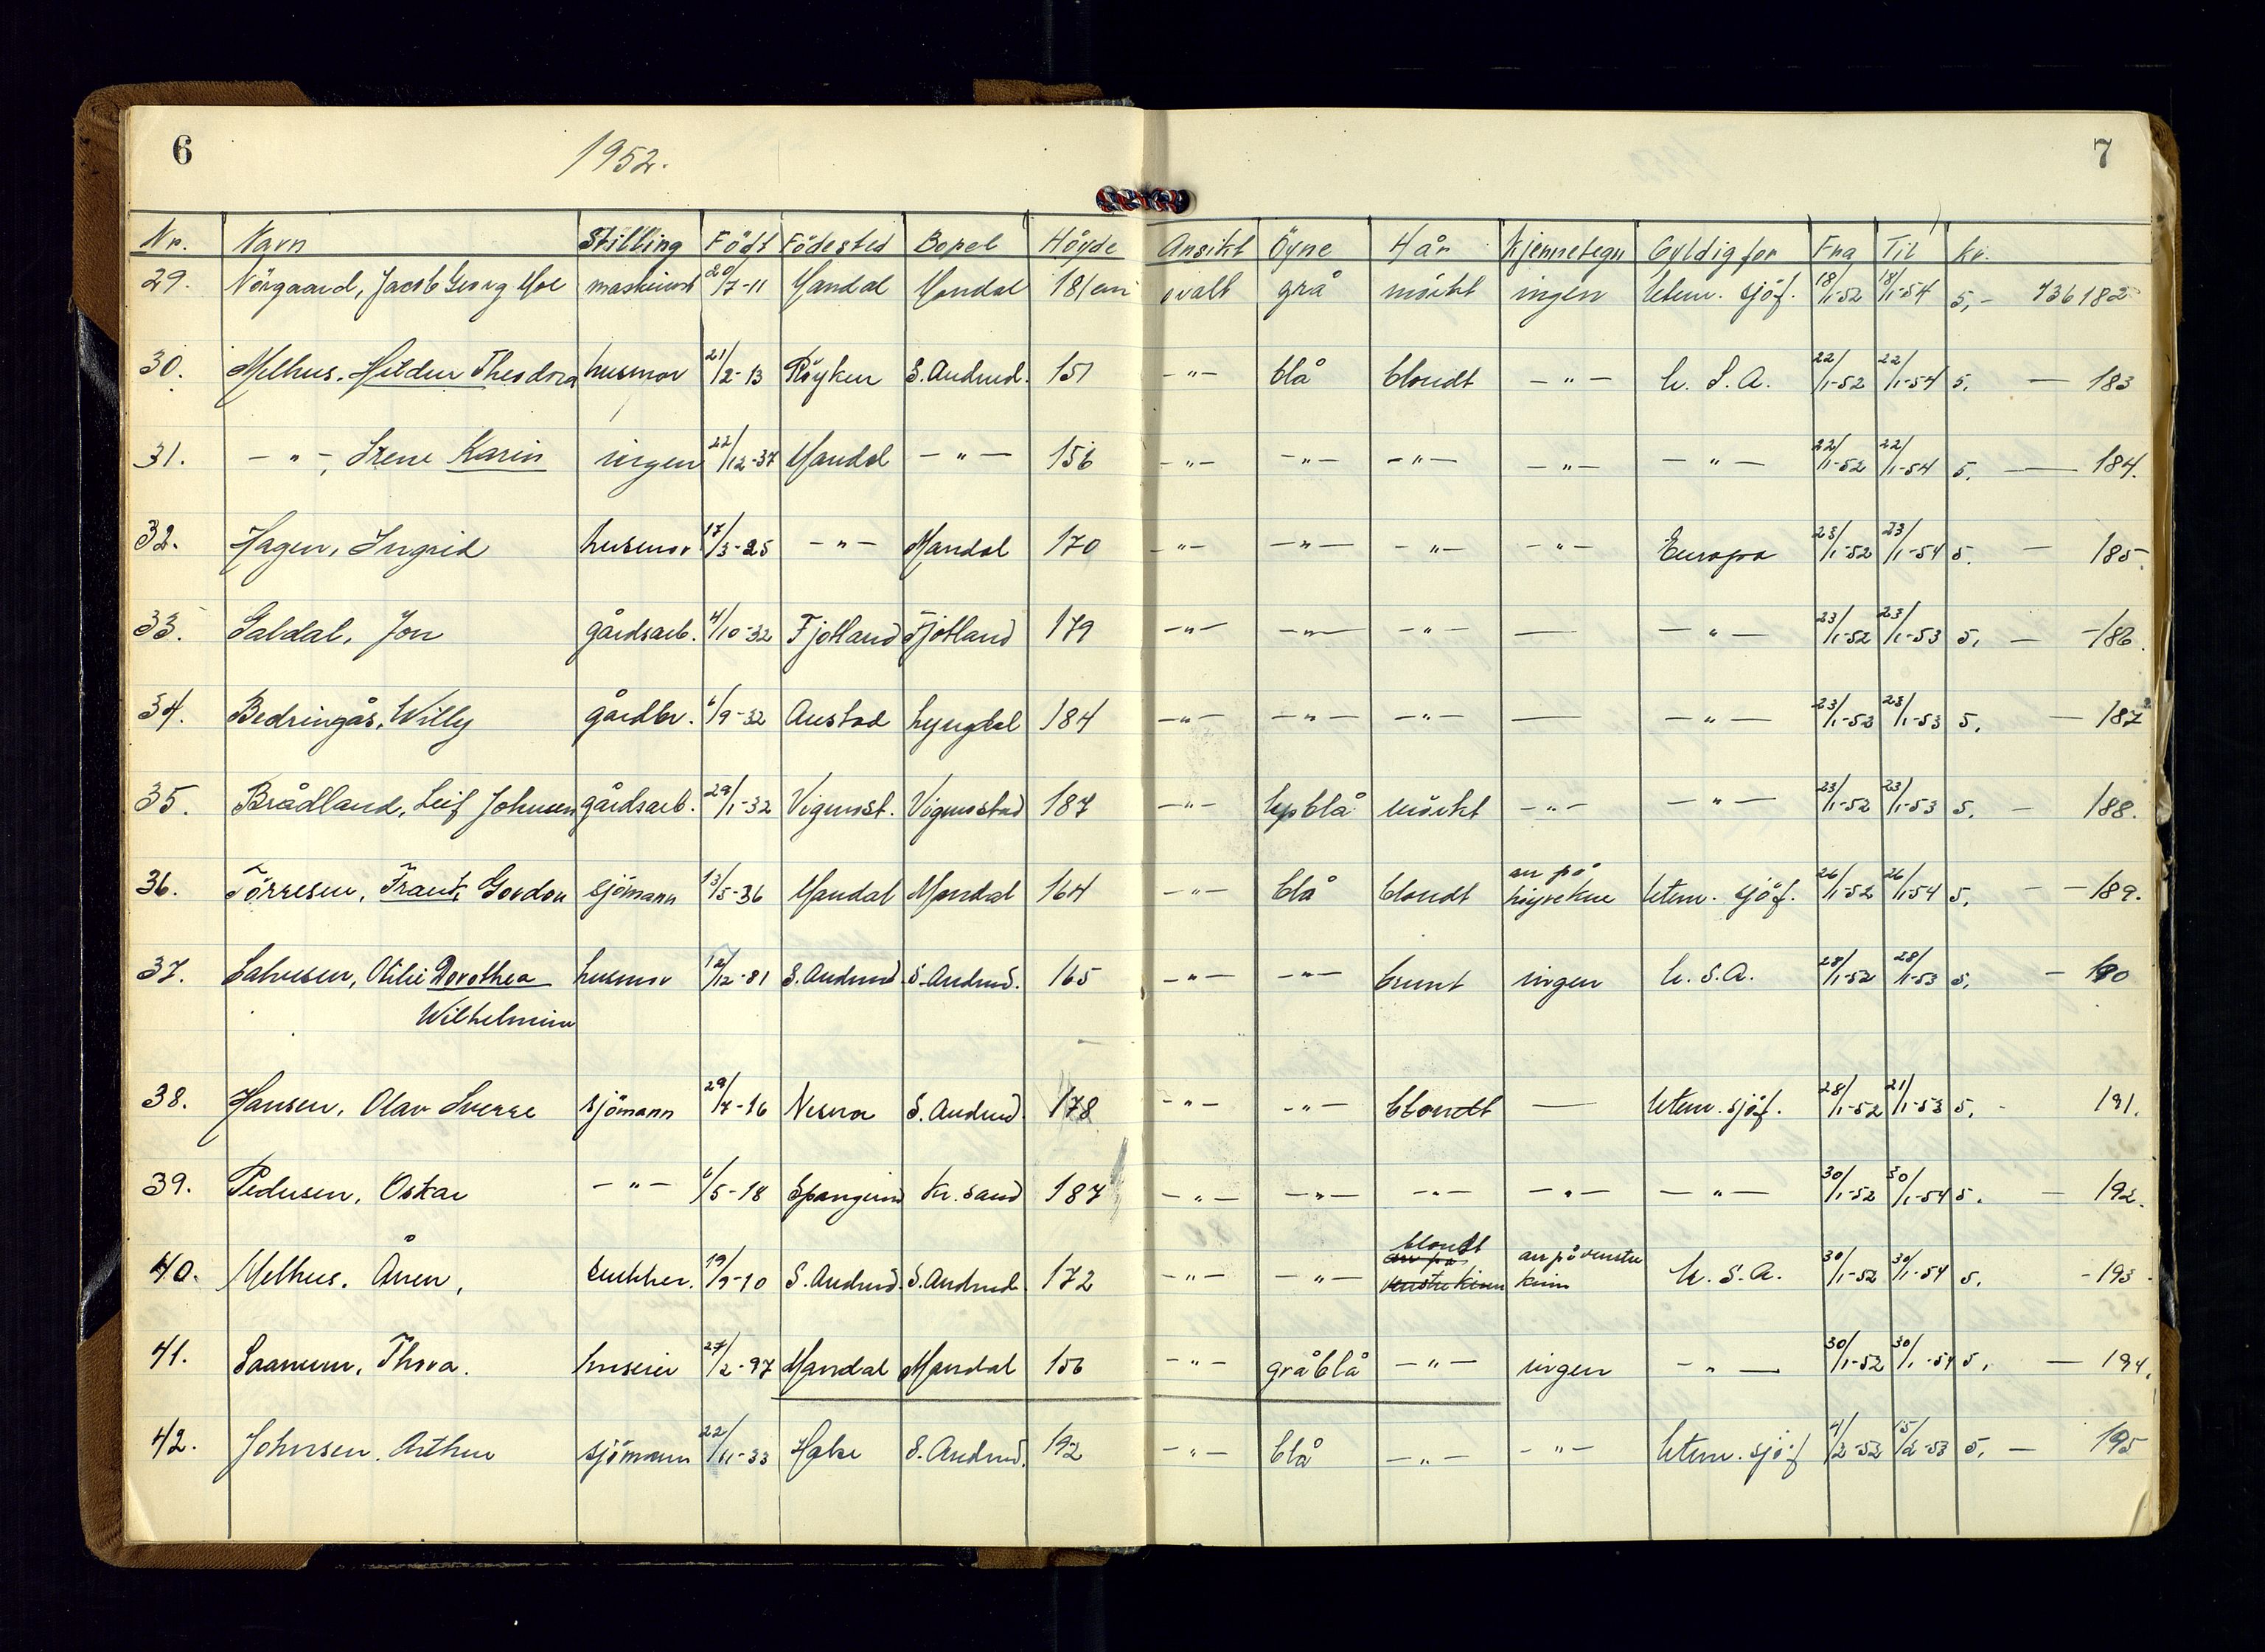 6
1952.
7
Nr. Navn Stilling Født Födested Bopel Høyde Ansikt Öyne Hår Kjennetegn Gyldig for Fra Til kr.
29. Nörgaard, Jacob Georg Moe maskinist 20/7-11 Mandal Mandal 181 cm ovalt grå mörkt ingen Utenr. sjöf. 18/1-52 18/1-54 5,- 736182
30. Melhus. Hildur Theodora husmor 21/2-13 Röyken S. Audned. 151 -"- blå blondt -"- U. S. A. 22/1-52 22/1-54 5. — 183
31. -"-, Irene Karin ingen 22/12-37 Mandal -"- 156 -"- -"- -"- -"- -"- 22/1-52 22/1-54 5. — 184.
32. Hagen, Ingrid husmor 17/3-25 -"- Mandal 170 -"- -"- -"- -"- Europa 23/1-52 23/1-54 5. — 185
33. Galdal, Jon gårdsarb. 4/10-32 Fjotland Fjotland 179 -"- -"- -"- — -"- 23/1-52 23/1-53 5, — -186.
34. Bedringås, Willy gårdbr. 6/9-32 Austad Lyngdal 184 -"- -"- -"- — -"- 23/1-52 23/1-53 5. — 187
35. Brådland, Leif Johnsen gårdsarb. 29/1-32 Vigmost. Vigmostad 187 -"- lysblå mörkt -"- -"- 23/1-52 23/1-53 5. — 188.
36. Törresen, Frank Gordon sjömann 13/5-36 Mandal Mandal 164 -"- blå blondt arr på høyre kne Utenr. sjöf. 26/1-52 26/1-54 5, — 189.
37. Salvesen, Otilie Dorothea husmor 12/12-81 S. Audned S. Audned. 165 -"- -"- brunt ingen U. S. A. 28/1-52 28/1-53 5, — 190
Wilhelmine
38. Hansen, Olav Sverre sjömann 29/7-16 Nesna S. Audned. 178 -"- -"- blondt — Utenr. sjöf. 28/1-52 21/1-53 5, - 191.
39. Pedersen, Oskar -"- 6/5-18 Spangereid Kr. sand 187 -"- -"- -"- -"- -"- 30/1-52 30/1-54 5. — 192.
40. Melhus. Ånen, snekker. 19/9-10 S. Audned. S. Audned. 172 -"- -"- blondt arr på venstre kinn arr på venstre kinn U. S. A. 30/1-52 30/1-54 5, -193
41. Saanum, Thora. huseier 27/2-97 Mandal Mandal 156 -"- gråblå -"- ingen -"- 30/1-52 30/1-54 5, — 194.
42. Johnsen. Arthur sjömann 22/11-33 S. Audned. 192 -"- blå -"- -"- Utenr. sjöf 4/2-52 15/2-53 5, — 195